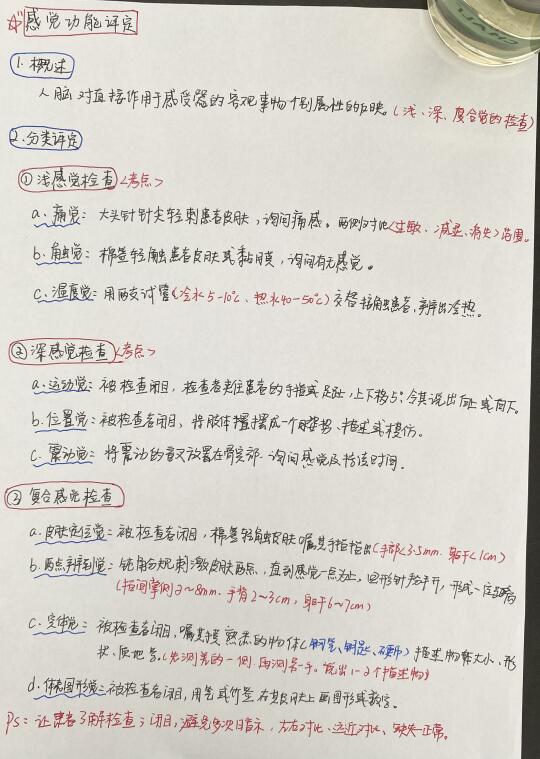 ☆感觉功能评定
1. 概述
人脑对直接作用于感受器的客观事物个别属性的反映。(浅、深、复合觉的检查)
2. 分类评定
①浅感觉检查<考点>
a. 痛觉：大头针针尖轻刺患者皮肤，询问痛感。两侧对比(过敏、减退、消失)范围。
b. 触觉：棉签轻触患者皮肤或黏膜，询问有无感觉。
c. 温度觉：用两支试管(冷水5-10℃、热水40-50℃)交替接触患者，辨出冷热。
②深感觉检查<考点>
a. 运动觉：被检查者闭目，检查者夹住患者的手指或足趾，上下移动，令其说出向上或向下。
b. 位置觉：被检查者闭目，将肢体摆成一个姿势、描述或模仿。
c. 震动觉：将震动的音叉放置在骨突部、询问感觉及持续时间。
③复合感觉检查
a. 皮肤定位觉：被检查者闭目，棉签轻触皮肤嘱其手指指出(手部<3.5mm、躯干<1cm)
b. 两点辨别觉：钝角分规刺激皮肤两点，直到感觉一点为止，
(指间掌侧2~8mm、手背2~3cm，躯干6~7cm)
c. 实体觉：被检查者闭目，嘱其摸熟悉的物体(钢笔、钥匙、硬币)描述物体大小、形
状、质地等。(先测差的一侧，再测另一手。说出1-2个描述物)
d. 体表图形觉：被检查者闭目，用笔或竹签在其皮肤上画图形或数字。
Ps：让患者了解检查；闭目，避免多次目暗示，左右对比、远近对比、